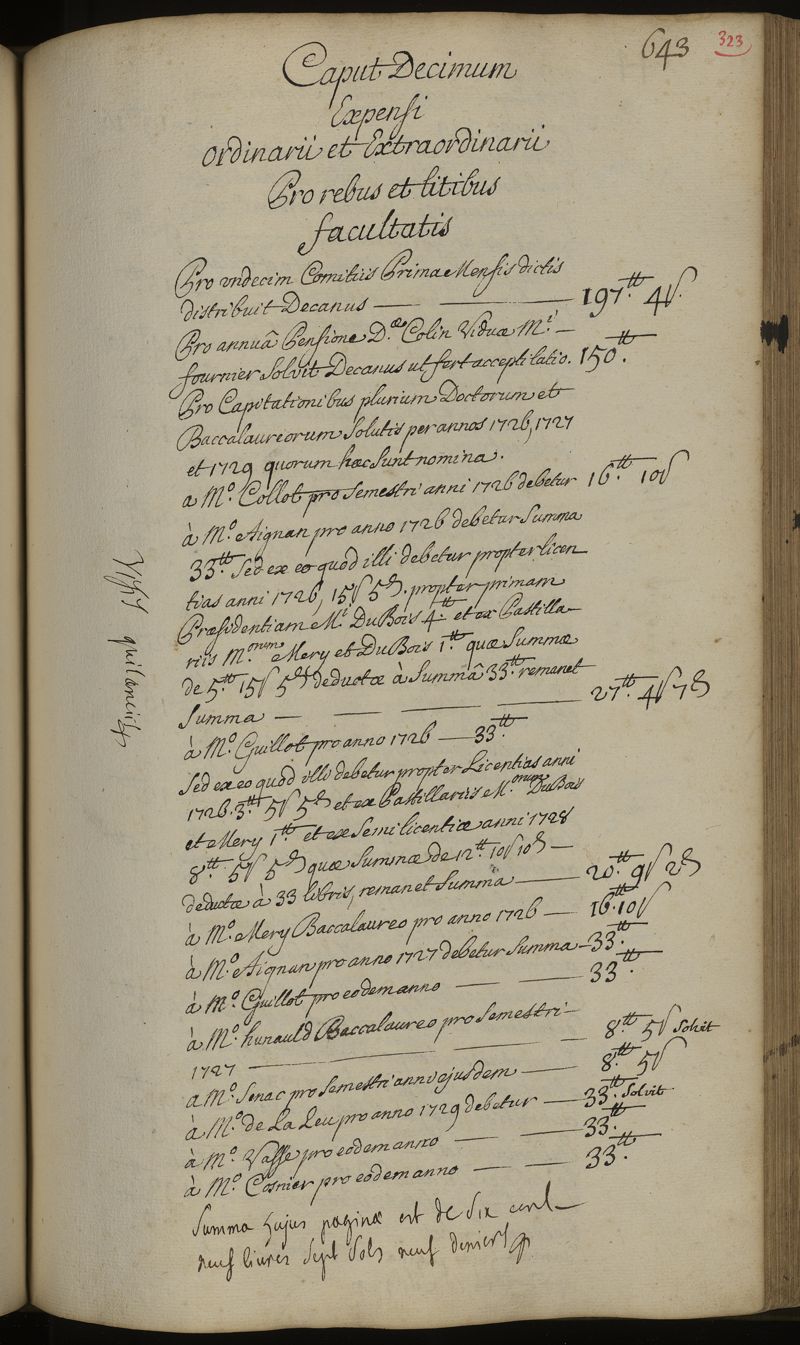 643 323
Caput Decimum
Expensi
ordinarii et Extraordinarii
Pro rebus et litibus
facultatis
Pro undecim Comitiis Prima Mensis dictis
distribuit Decanus — — 197.tt 4ſ.
Pro annuâ Pensione D.æ Colin Viduæ M.i —
fournier solvit Decanus ut fert acceptilatio. 150.tt
Pro Capitationibus plurium Doctorum et
Baccalaureorum solutis per annos 1726, 1727
et 1729 quorum hæc sunt nomina.
a M.o Collot pro semestri anni 1726 debetur 16.tt 10ſ
à M.o Aignan pro anno 1726 debetur summa
33.tt sed ex eo quod illi debetur propter licen
tias anni 1726, 15ſ 5d. propter primam
Præsidentiam M.i DuBois 4tt et ex Pastilla-
riis M.orum Mery et DuBois 1.tt quæ summæ
de 5.tt 15ſ 5d deductæ à summâ 33.tt remanet
summa — — — — 27.tt 4ſ 7d
à M.o Guillot pro anno 1726 — 33.tt
sed ex eo quod illi debetur propter Licentias anni
1726. 3.tt 5ſ 5d et ex Pastillariis M.orum DuBois
et Mery 1.tt et ex semi licentiæ anni 1728
8.tt 5ſ 5d quæ summæ de 12.tt 10ſ 10d —
deductæ à 33 libris, remanet summa — 20.tt 9ſ 2d
à M.o Mery Baccalaureo pro anno 1726 — 16.tt 10ſ
à M.o Aignan pro anno 1727 debetur summa — 33.tt
à M.o Guillot pro eodem anno — — 33.tt
à M.o hunauld Baccalaureo pro semestri —
1727 — — — 8.tt 5ſ solvit
a M.o Senac pro semestri anni ejusdem — 8.tt 5ſ
à M.o de La Leu pro anno 1729 debetur — 33.tt solvit
à M.o Vasse pro eodem anno — — 33.tt
à M.o Cosnier pro eodem anno — — 33.tt
Summa hujus paginæ est de Six cent —
neuf livres Sept Sols neuf deniers